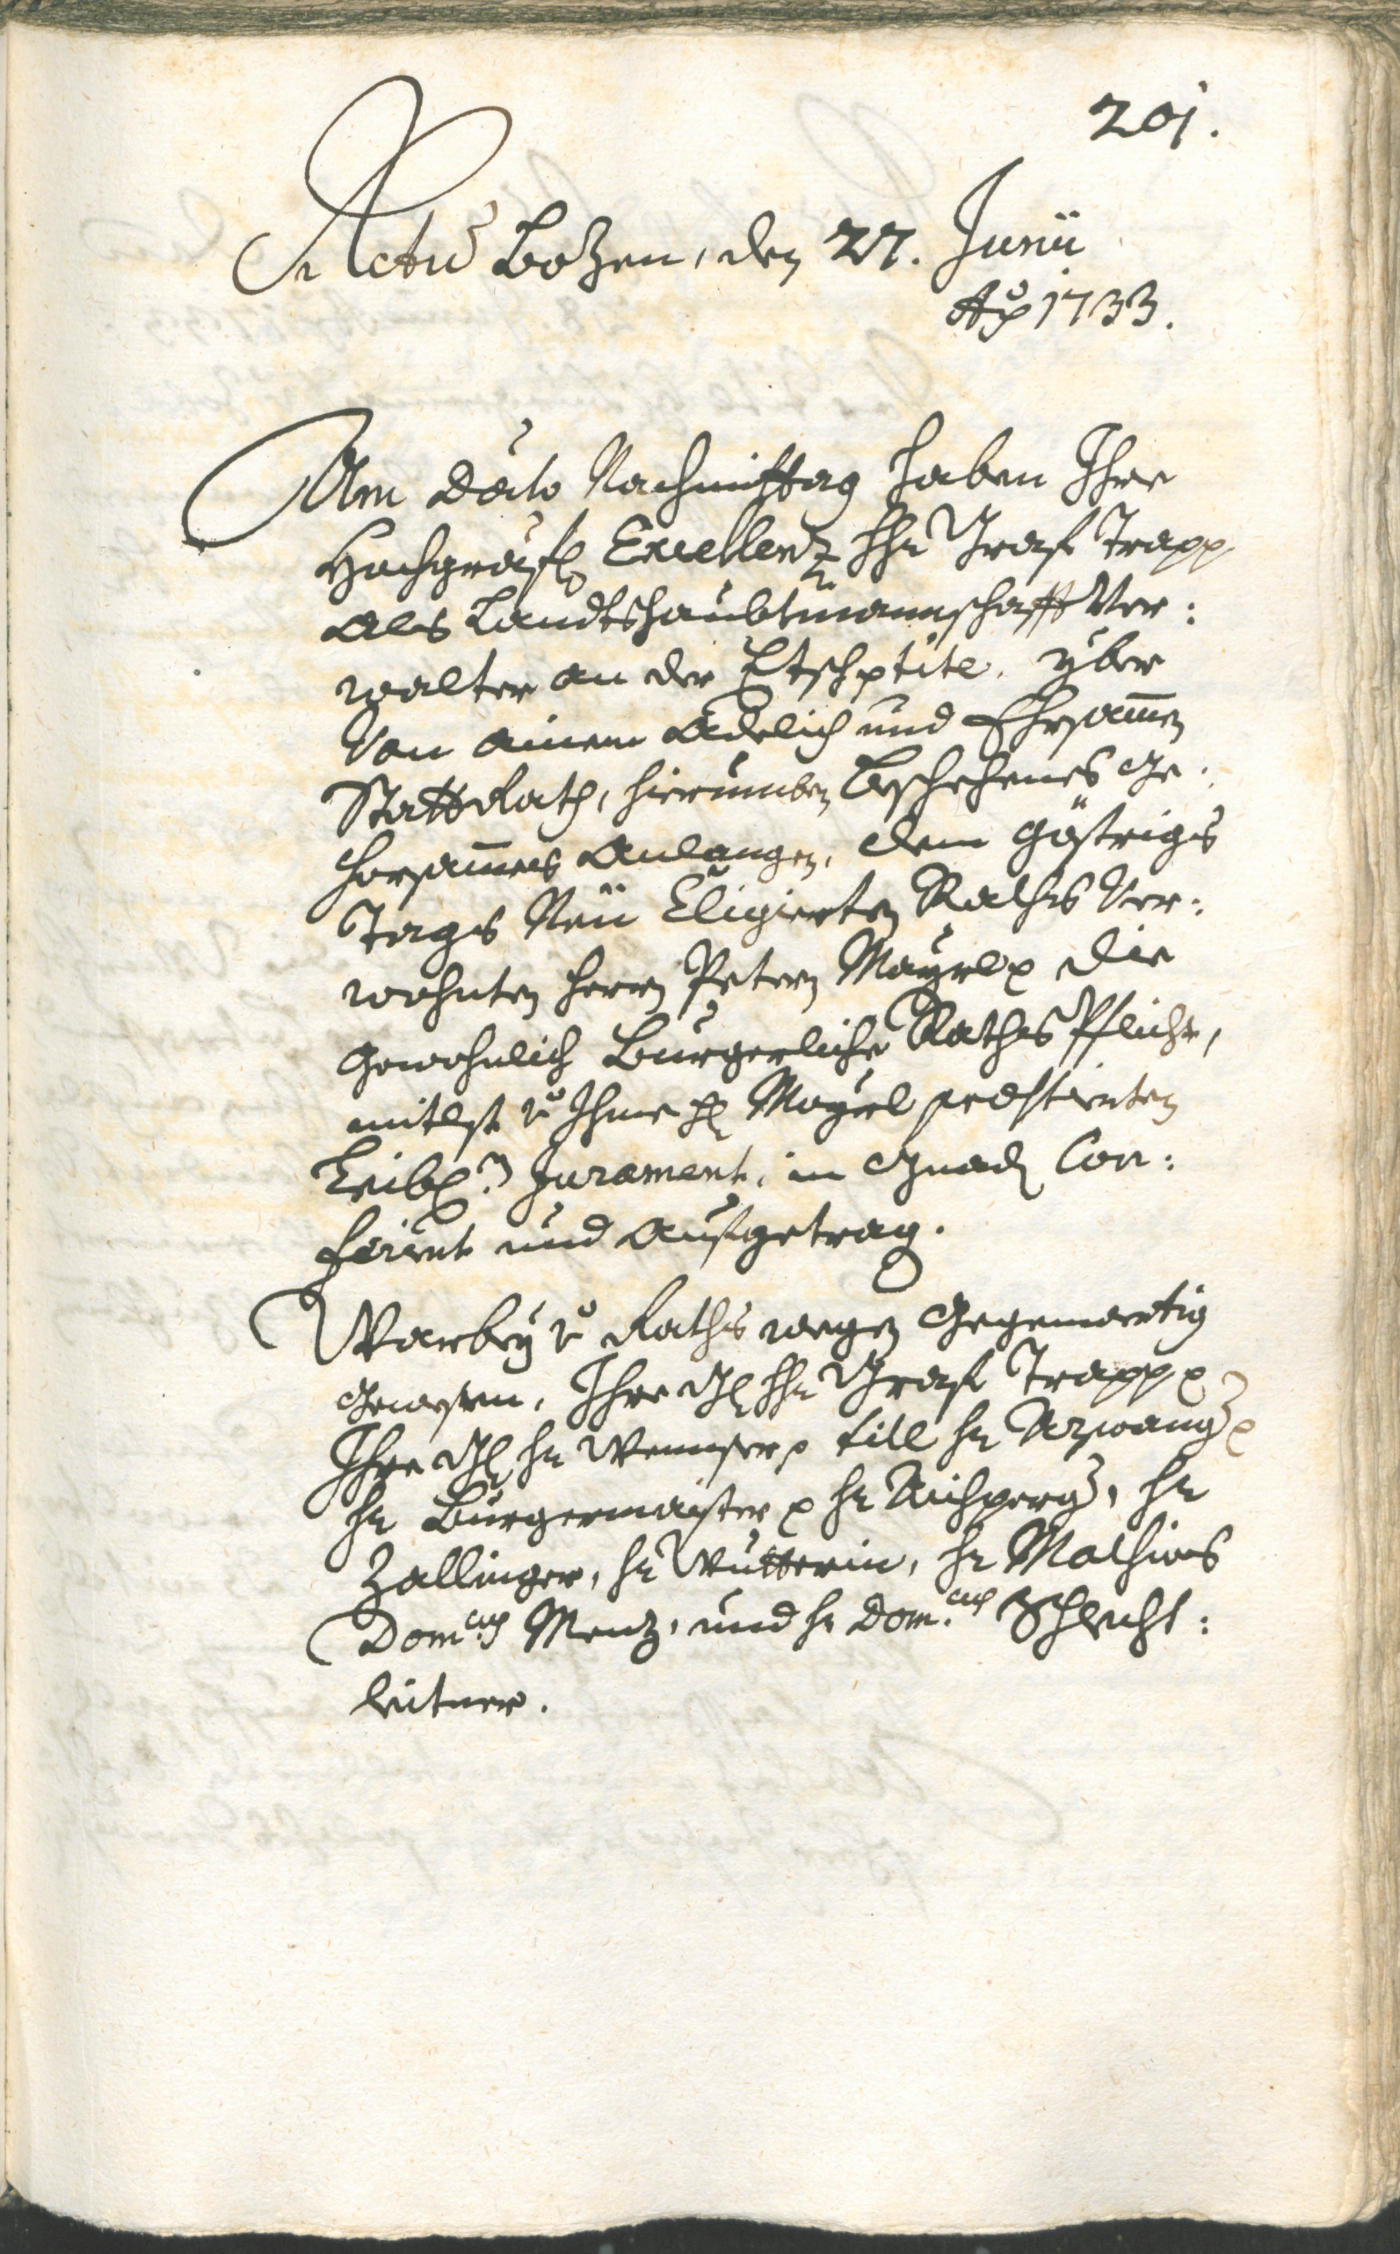 201.
Actu Botzen, den 27. Junii
Aõ 1733.
Am dato Nachmittag haben Ihre
Hochgräfl Excellenz hhr Graf Trapp
als Landtshaubtmannschafft Ver:
walter an der Etsch tite. yber
Von ainem Adelich und Ehrsamen
Stattrath, hierumben beschehenes Ge:
horsames Anlangen, dem gösterigs
Tags Neü Eligierten Raths Ver:
wohnten herrn Petern Mayrl die
gewohnlich Burgerliche Raths Pflicht,
mitlst v Ihme hl Mayrl prestierten
Leibl. Jurament, in Gnad Con:
feriert und aufgetrag.
Warbey v Raths wegen Gegenwertig
gewesen, Ihre Gl hhr Graf Trapp
Ihre Gl hr Wennser till hr Azwang
hr Burgermaister hr Aichperg, hr
Zallinger, hr Wutterin, hr Mathias
Domcus Menz, und hr Dom.cus Schlecht:
leitner.